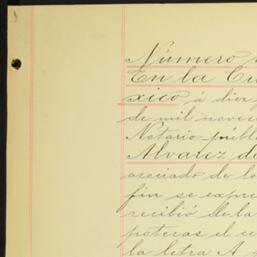 Número
En la Ciu
xico á diez
de mil novec
Notario públi
Alvarez de
asociado de lo
fin se expre
recibió de la
potecas el ce
la letra A